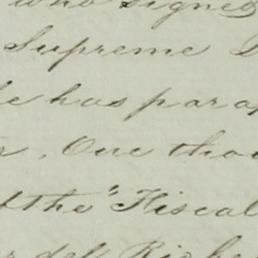 who signed
Supreme
he has parap
One thou
the "Fiscal
del Riche